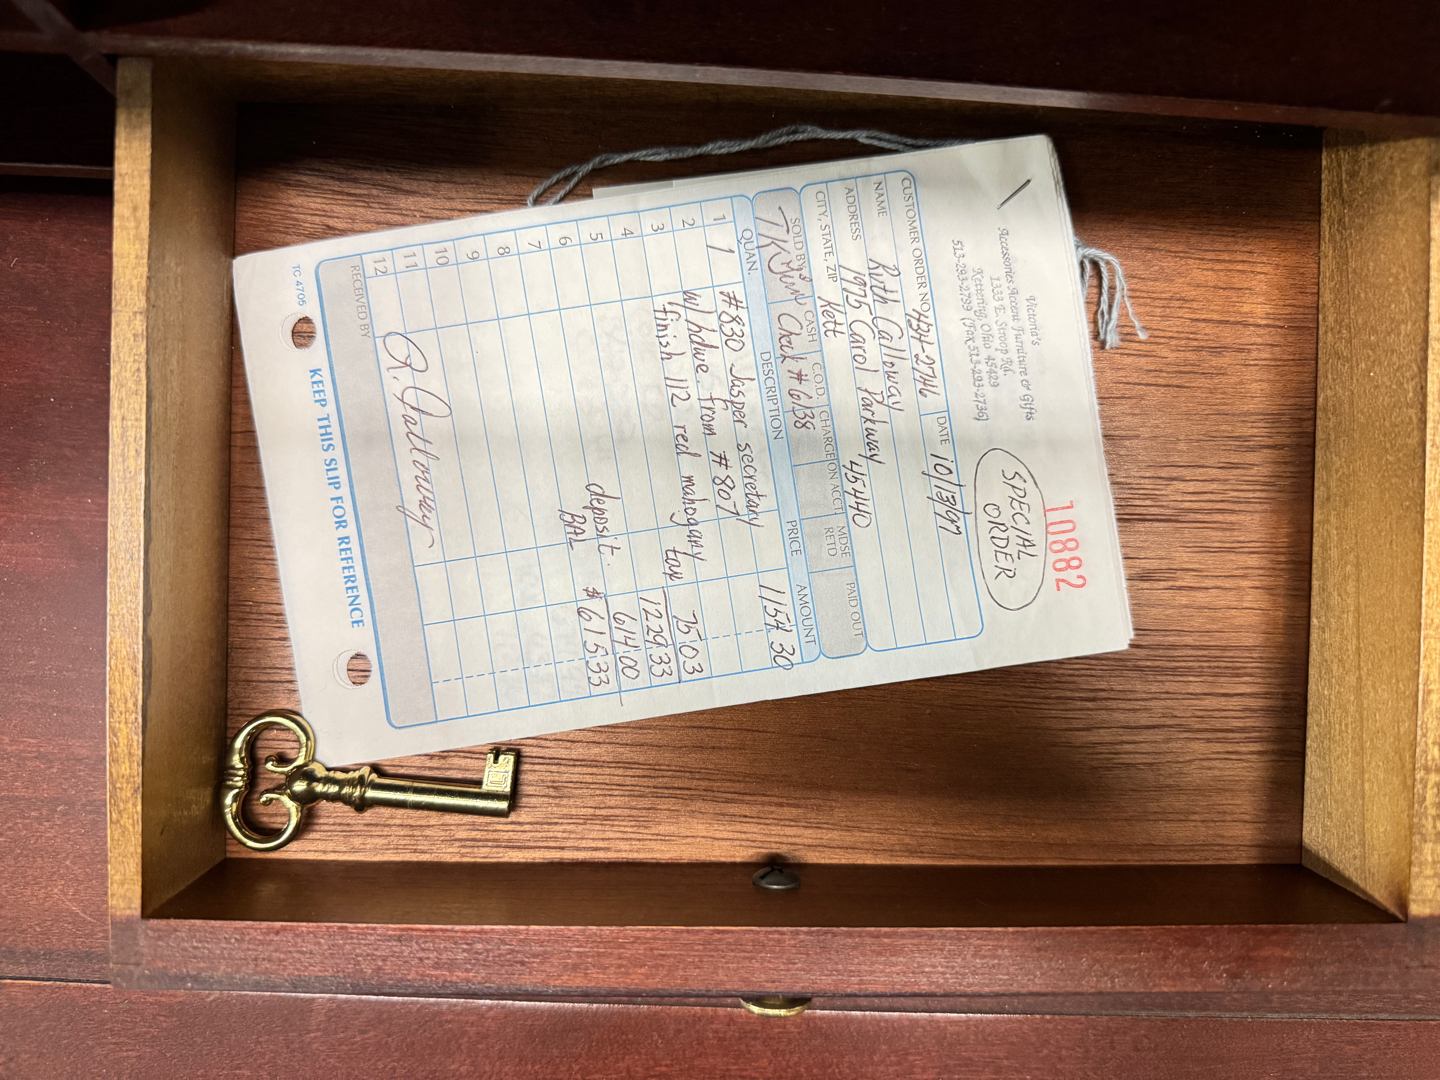 10882
Victoria's
Accessories Accent Furniture & Gifts
1333 E. Stroop Rd.
Kettering, Ohio 45429
513-293-2799 (Fax 513-293-2736)
SPECIAL
ORDER
CUSTOMER ORDER NO. 434-2746 DATE 10/3/97
NAME Ruth Calloway
ADDRESS 1975 Carol Parkway 45440
CITY, STATE, ZIP Kett
SOLD BY CASH C.O.D. CHARGE ON ACCT. MDSE RETD PAID OUT
Check #6138
QUAN. DESCRIPTION PRICE AMOUNT
1 1 #830 Jasper secretary 1154 30
2 w/hdwe. from #807
3 finish 112 red mahogany tax 75 03
4 1229 33
5 deposit 614 00
6 BAL $615 33
7
8
9
10
11
12
RECEIVED BY R. Calloway
TC 4705 KEEP THIS SLIP FOR REFERENCE